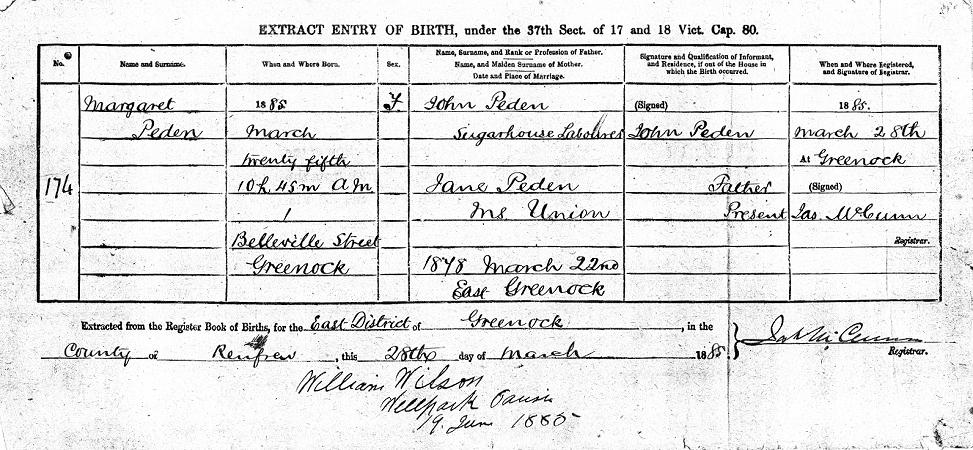 EXTRACT ENTRY OF BIRTH, under the 37th Sect. of 17 and 18 Vict. Cap. 80.
No.
Name and Surname.
When and Where Born.
Sex.
Name, Surname, and Rank or Profession of Father.
Name, and Maiden Surname of Mother.
Date and Place of Marriage.
Signature and Qualification of Informant,
and Residence, if out of the House in
which the Birth occurred.
When and Where Registered,
and Signature of Registrar.
174
Margaret
Peden
1885
March
twenty fifth
10h. 45m A M
1
Belleville Street
Greenock
F.
John Peden
Sugarhouse Labourer
Jane Peden
Ms Union
1878 March 22nd
East Greenock
(Signed)
John Peden
Father
Present
1885.
March 28th
At Greenock
(Signed)
Jas. McCunn
Registrar.
Extracted from the Register Book of Births, for the East District of Greenock, in the
County of Renfrew, this 28th day of March 1885
Jas McCunn
Registrar.
William Wilson
Wellpark
19. June 1885